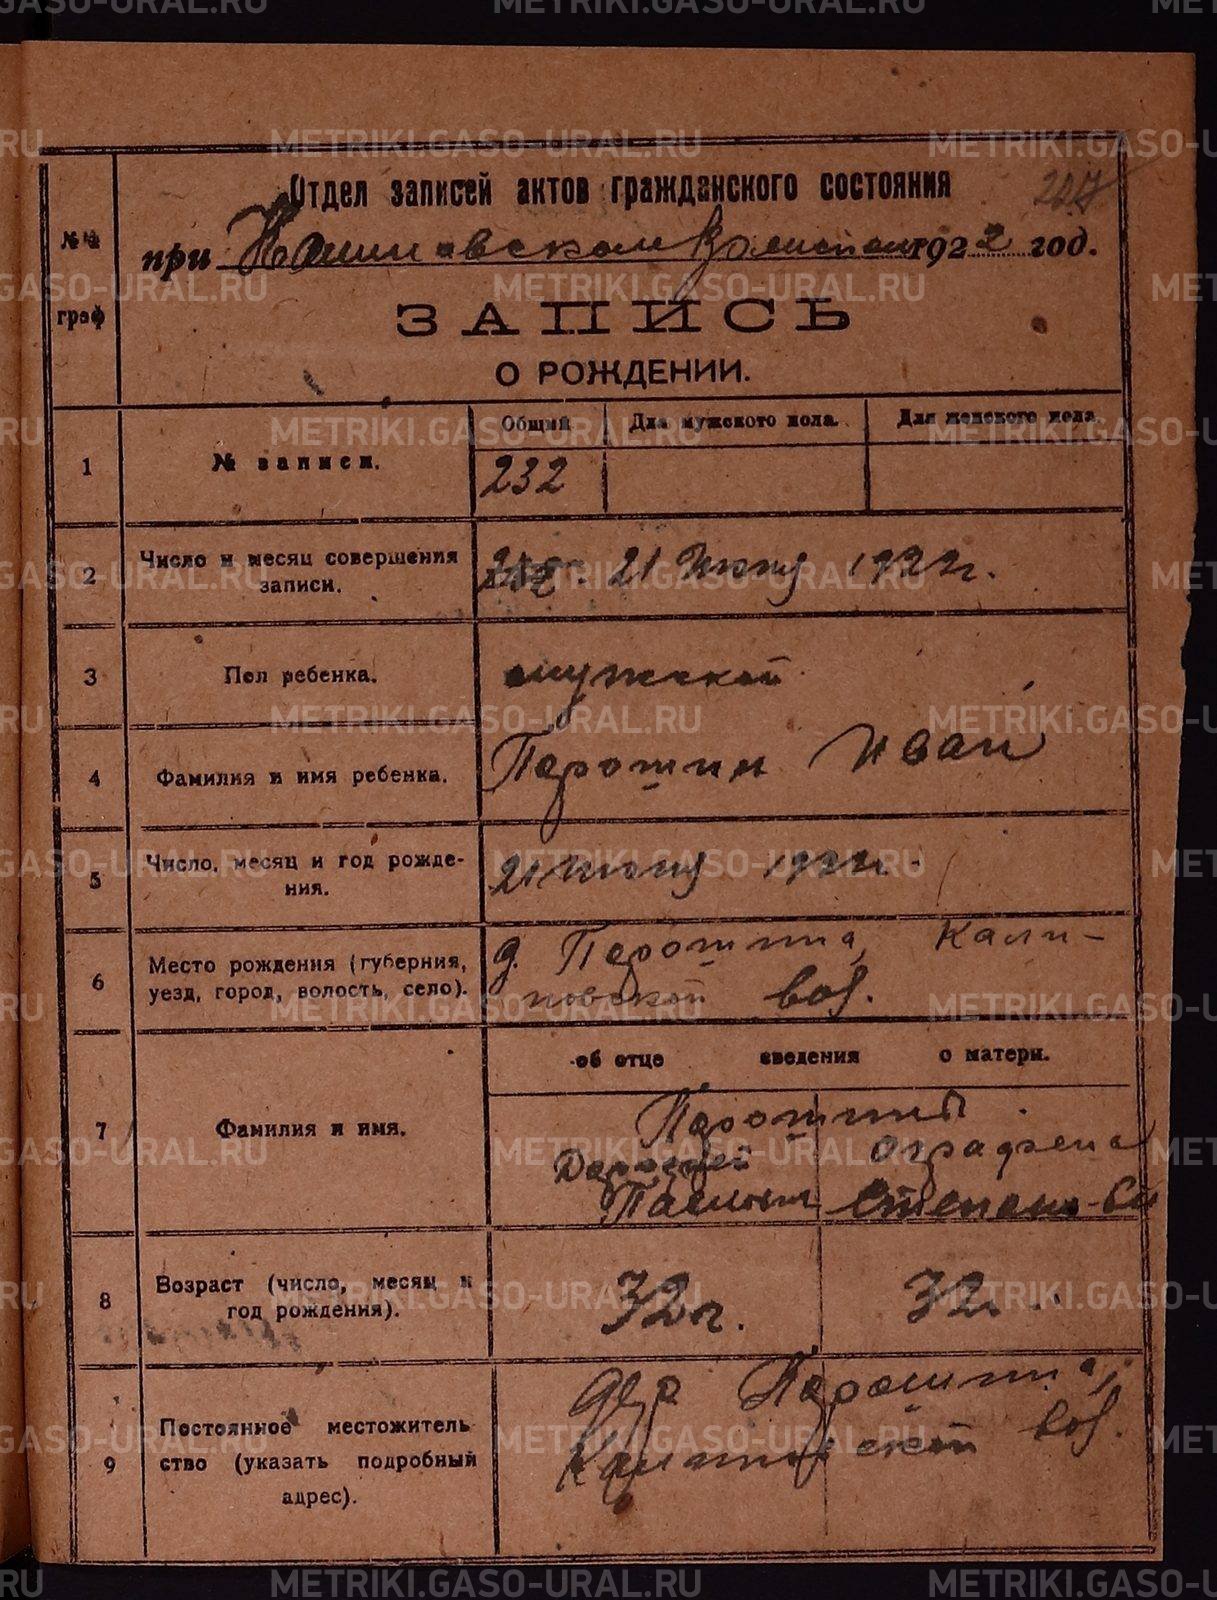 Отдел записей актов гражданского состояния
при Калиновском Волисполк 1922 год.
№№ граф
227
ЗАПИСЬ
О РОЖДЕНИИ.
Общий Для мужского пола. Для женского пола
1 № записи. 232
2 Число и месяц совершения записи. 21 Июня 1922 г.
3 Пол ребенка. мужской
4 Фамилия и имя ребенка. Порошин Иван
5 Число, месяц и год рождения. 21 июня 1922 г.
6 Место рождения (губерния, уезд, город, волость, село). д. Порошина, Кали-
новской вол.
об отце сведения о матери.
7 Фамилия и имя. Порошины
Дорофей Аграфена
Павлович Степановн
8 Возраст (число, месяц и год рождения). 32 г. 32 г.
9 Постоянное местожительство (указать подробный адрес). дер Порошина,
Калиновской вол.
METRIKI.GASO-URAL.RU